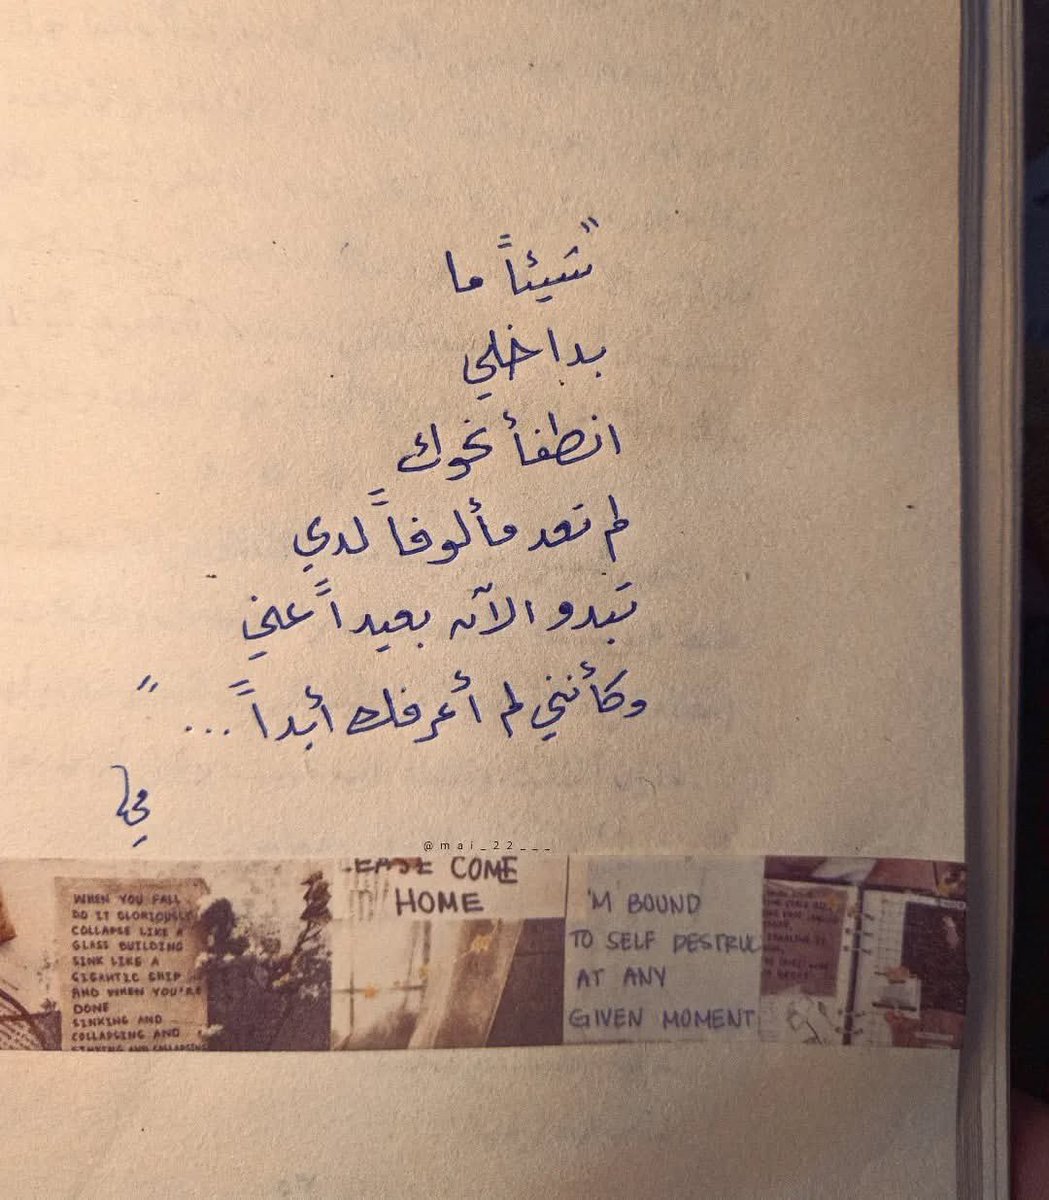 "شيئاً ما
بداخلي
انطفأ نحوك
لم تعد مألوفاً لدي
تبدو الآن بعيداً عني
وكأنني لم أعرفك أبداً ..."
مي
@mai_22___
WHEN YOU FALL
DO IT GLORIOUSLY
COLLAPSE LIKE A
GLASS BUILDING
SINK LIKE A
GIGANTIC SHIP
AND WHEN YOU'RE
DONE
SINKING AND
COLLAPSING AND
SINKING AND COLLAPSING
LEASE COME
HOME
'M BOUND
TO SELF DESTRUC
AT ANY
GIVEN MOMENT